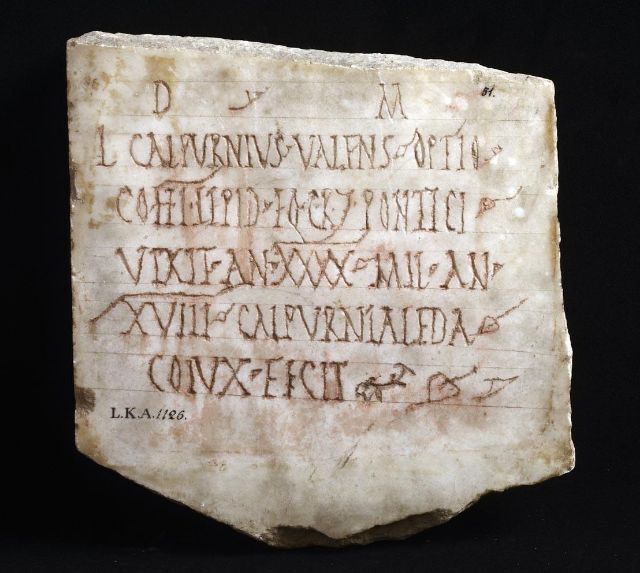 D M
L CALPURNIUS·VALENS·OPTIO
COH·I·LEPID·EQ·CR 7 PONTICI
VIXIT·AN·XXXX·MIL·AN·
XVIII·CALPURNIA LEDA
COIUX·FECIT
L.K.A. 1126.